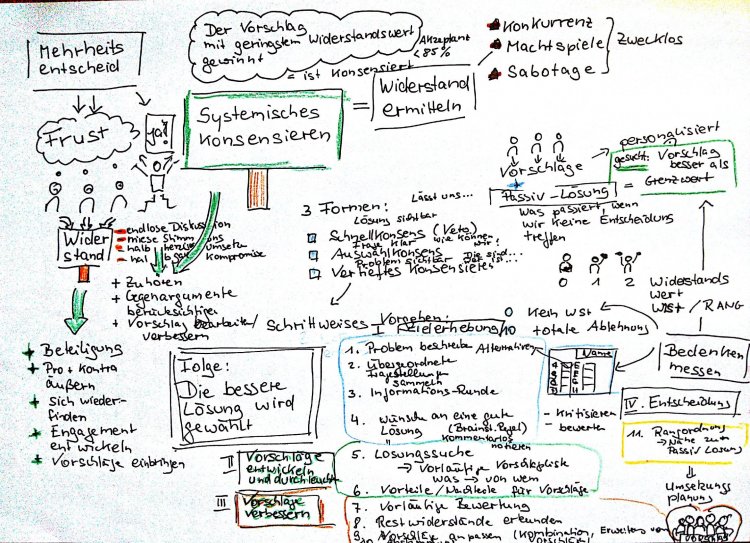 Mehrheits
entscheid
Frust
ja!!
Der Vorschlag
mit geringstem Widerstandswert
gewinnt
Akzeptanz
< 85%
= ist konsensiert
Systemisches
Konsensieren
=
Widerstand
ermitteln
Konkurrenz
Machtspiele
Sabotage
Zwecklos
Wider
stand
endlose Diskussion
miese Stimmung
halbherzige Umsetz
halbgar Kompromisse
+ Zuhören
+ Gegenargumente
berücksichtigen
+ Vorschlag bearbeiten/
verbessern
+ Beteiligung
+ Pro + Kontra
äußern
+ sich wieder-
finden
+ Engagement
entwickeln
+ Vorschläge einbringen
3 Formen:
Lösung sichtbar
Lässt uns...
Schnellkonsens (Veto)
Frage klar
wie können
wir?
Auswahlkonsens
Problem sichtbar
Die sind...
Vertieftes Konsensieren
Vorschläge
+
Passiv-Lösung
personalisiert
gesucht: Vorschlag
besser als
= Grenzwert
was passiert, wenn
wir keine Entscheidung
treffen
0 1 2
Widerstands
wert
WST / RANG
0 Kein WST
10 totale Ablehnung
Bedenken
messen
Schrittweises Vorgehen:
I Zielerhebung
1. Problem beschreiben
Alternativen
2. Übergeordnete
Fragestellungen
sammeln
3. Informations-Runde
4. Wünsche an eine gute
Lösung (Brainst. Regel)
kommentarlos
notieren
Name
- kritisieren
- bewerten
Folge:
Die bessere
Lösung wird
gewählt
II Vorschläge
entwickeln
und durchleuchten
5. Lösungssuche
→ Vorläufige Vorschlagsliste
was → von wem
6. Vorteile/Nachteile für Vorschläge
III Vorschläge
verbessern
7. Vorläufige Bewertung
8. Restwiderstände erkunden
9. Vorschläge anpassen (Kombination, Erweitern von
10.
IV. Entscheidung
11. Rangordnung
→ Nähe zur
Passiv Lösung
Umsetzungs
planung